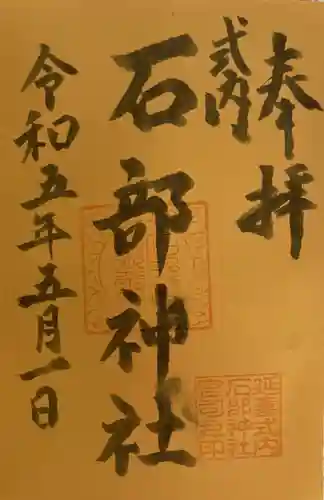 奉拝
式内
石部神社
令和五年五月一日
延喜式内
石部神社